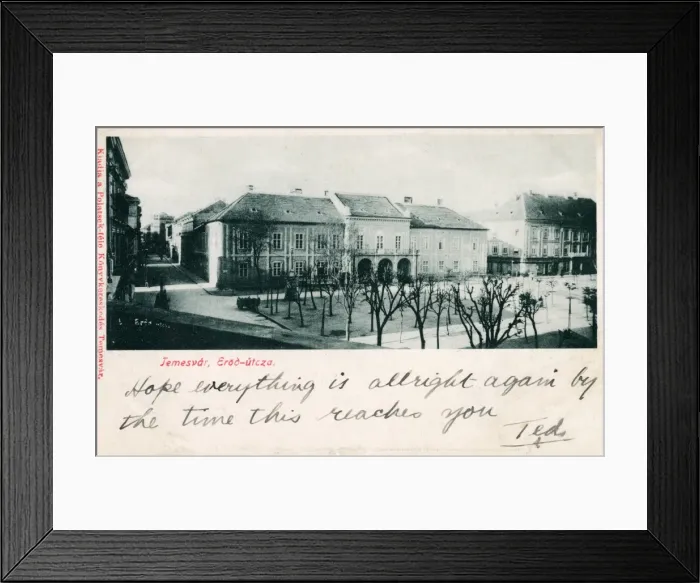 Kiadja a Polatsek-féle Könyvkereskedés Temesvár.
Temesvár, Erőd-útcza.
Hope everything is allright again by
the time this reaches you
Ted.